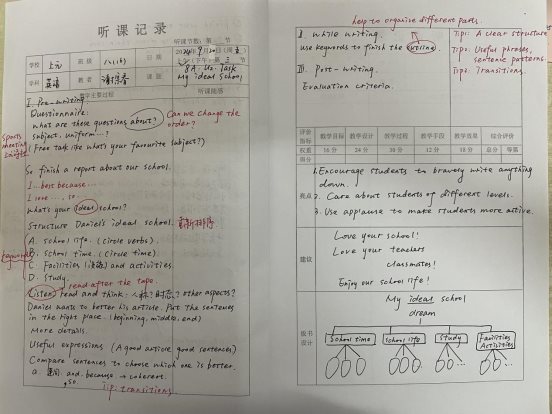 听课记录
听课节数:第 节
学校 上元 班级 八(16) 日期 9月20日(周五)
(下午)第三节
学科 英语 教者 课题 8A U2 Task
My ideal School
教学主要过程 听课随感
I. Pre-writing.
Questionnaire:
what are these questions about?
subject, uniform...?
Can we change the order?
(Free task like what's your favourite subject?)
sports meeting
So finish a report about our school.
I...best because...
I love..., so
What's your ideal school?
Structure Daniel's ideal school. 重新排序
keywords
A. School life. (circle verbs).
B. School time. (circle time).
C. Facilities and activities.
D. Study.
read after the tape.
Listen, read and think: 人称? 时态? other aspects?
Daniel wants to better his article. Put the sentences
in the right place. (beginning, middle, end)
More details.
Useful expressions (A good article, good sentences)
Compare sentences to choose which one is better.
a. and. because → coherent.
so
Tip: transitions
help to organise different parts.
II. While writing.
use keywords to finish the outline
III. Post-writing.
Evaluation criteria.
Tip1: A clear structure
Tip2: Useful phrases, sentence patterns.
Tip3: Transitions.
评价指标 教学目标 教学设计 教学过程 教学手段 教学效果 综合评价
权重 16分 24分 30分 12分 18分 总分 等第
得分
亮点
1. Encourage students to bravely write anything
down.
2. Care about students of different levels.
3. Use applause to make students more active.
建议
Love your school!
Love your teachers
classmates!
Enjoy our school life!
板书设计
My ideal school
dream
School time School life Study Facilities
Activities